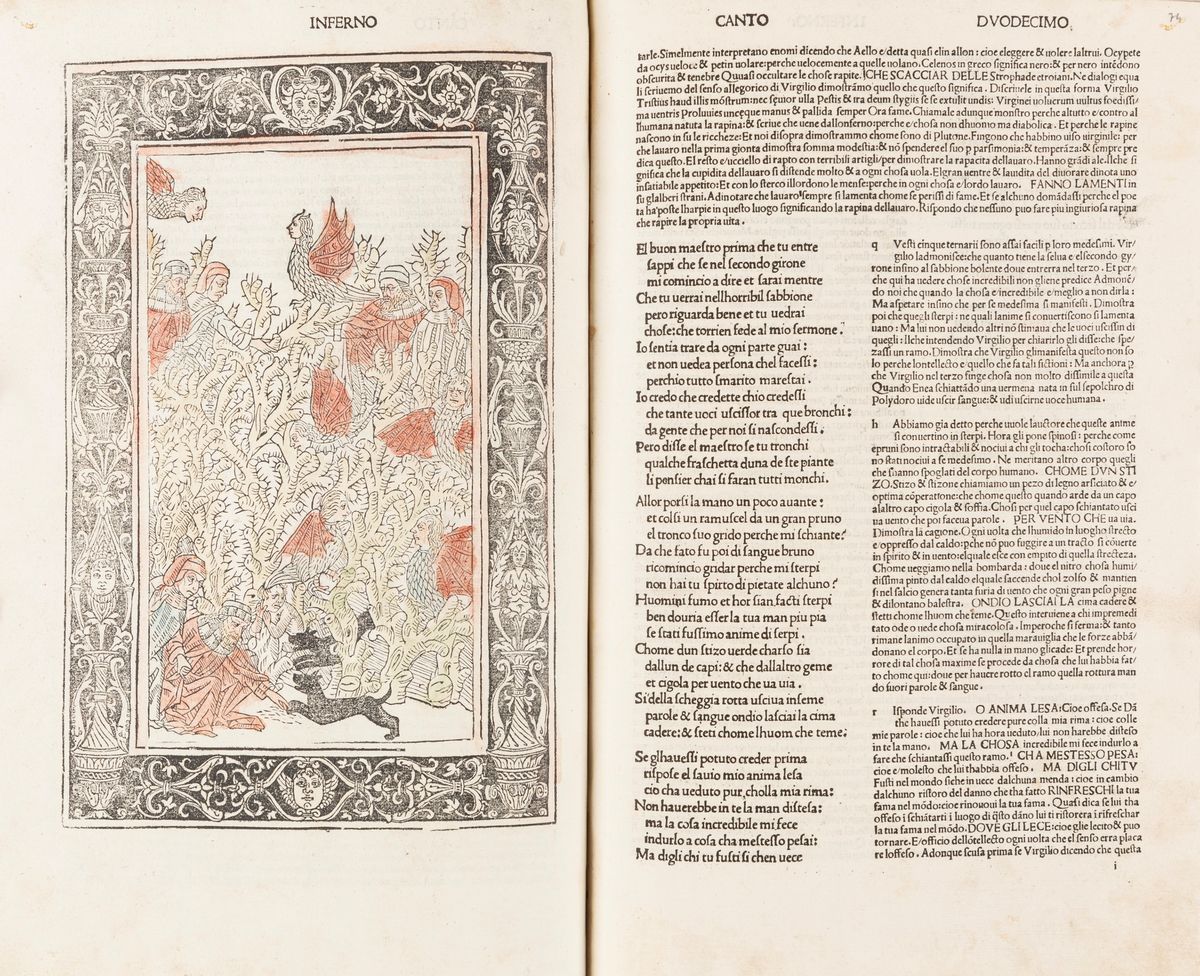 INFERNO
CANTO
DVODECIMO
74
tarle. Simelmente interpretano enomi dicendo che Aello e/detta quasi elin allon: cioe eleggere & uolere laltrui. Ocypete
da ocys ueloce & petin uolare: perche uelocemente a quelle uolano. Celenos in greco significa nero: & per nero intēdono
obscurita & tenebre Quuasi occultare le chose rapite. CHE SCACCIAR DELLE Strophade etroiani. Ne dialogi equa
li scriuemo del senso allegorico di Virgilio dimostrāmo quello che questo significa. Discriuele in questa forma Virgilio
Tristius haud illis mōstrum: nec sæuior ulla Pestis & ira deum stygiis se se extulit undis: Virginei uolucrum uultus fœdissi/
ma uentris Proluuies uncæque manus & pallida semper Ora fame. Chiamale adunque monstro perche altutto e/contro al
lhumana natuta la rapina: & scriue che uene dallonferno: perche e/chosa non dhuomo ma diabolica. Et perche le rapine
nascono in su le richeze: Et noi disopra dimostrammo chome sono di Plutone. Fingono che habbino uiso uirginile: per
che lauaro nella prima gionta dimostra somma modestia: & nō spendere el suo p parsimonia: & temperāza: & sempre pre
dica questo. El resto e/uccello di rapto con terribili artigli/per dimostrare la rapacita dellauaro. Hanno grādi ale. Ilche si
gnifica che la cupidita dellauaro si distende molto & a ogni chosa uola. Elgran uentre & lauidita del diuorare dinota uno
insatiabile appetito: Et con lo sterco illordono le mense: perche in ogni chosa e/lordo lauaro. FANNO LAMENTI in
su glalberi strani. Adinotare che lauaro sempre si lamenta chome se perissi di fame. Et se alchuno domādassi perche el poe
ta ha poste lharpie in questo luogo significando la rapina dellauaro. Rispondo che nessuno puo fare piu ingiuriosa rapina
che rapire la propria uita.
El buon maestro prima che tu entre
sappi che se nel secondo girone
mi comincio a dire et sarai mentre
Che tu uerrai nellhorribil sabbione
pero riguarda bene et tu uedrai
chose: che torrien fede al mio sermone.
Io sentia trare da ogni parte guai:
et non uedea persona chel facessi:
perchio tutto smarito marestai.
Io credo che credette chio credessi
che tante uoci uscissor tra que bronchi:
da gente che per noi si nascondessi.
Pero disse el maestro se tu tronchi
qualche fraschetta duna de ste piante
li pensier chai si faran tutti monchi.
Allor porsi la mano un poco auante:
et colsi un ramuscel da un gran pruno
el tronco suo grido perche mi schiante?
Da che fato fu poi di sangue bruno
ricomincio gridar perche mi sterpi
non hai tu spirto di pietate alchuno?
Huomini fumo et hor sian facti sterpi
ben douria esser la tua man piu pia
se stati fussimo anime di serpi.
Chome dun stizo uerde charso sia
dallun de capi: & che dallaltro geme
et cigola per uento che ua uia.
Si della scheggia rotta usciua inseme
parole & sangue ondio lasciai la cima
cadere: & steti chome lhuom che teme.
Se glhauessi potuto creder prima
rispose el sauio mio anima lesa
cio cha ueduto pur cholla mia rima:
Non hauerebbe in te la man distesa:
ma la cosa incredibile mi fece
indurlo a cosa cha mestesso pesa:
Ma digli chi tu fusti si chen uece
q Vesti cinque ternarii sono assai facili p loro medesimi. Vir/
gilio ladmonisce: che quanto tiene la selua e/elsecondo gy/
rone insino al sabbione bolente doue entrerra nel terzo. Et per/
che qui ha uedere chose incredibili non gliene predice Admonē/
do noi che quando la chosa e/incredibile e/meglio a non dirla:
Ma aspetare insino che per se medesima si manifesti. Dimostra
poi che quegli sterpi: ne quali lanime si conuertiscono si lamenta
uano: Ma lui non uedendo altri nō stimaua che le uoci uscissin di
quegli: Ilche intendendo Virgilio per chiarirlo gli disse: che spe/
zassi un ramo. Dimostra che Virgilio glimanifesta questo non so
lo perche lontellecto e/quello che fa tali fictioni: Ma anchora p
che Virgilio nel terzo finge chosa non molto dissimile a questa
Quando Enea schiattādo una uermena nata in sul sepolchro di
Polydoro uide uscir sangue: & udi uscirne uoce humana.
h Abbiamo gia detto perche uuole lauctore che queste anime
si conuertino in sterpi. Hora gli pone spinosi: perche come
epruni sono intractabili & nociui a chi gli tocha: chosi costoro so
no stati nociui a se medesimo. Ne meritano altro corpo quegli
che shanno spogliati del corpo humano. CHOME DVN STI
ZO. Stizo & stizone chiamiamo un pezo di legno arsiciato & e/
optima cōperattone: che chome questo quando arde da un capo
alaltro capo cigola & soffia. Chosi per quel capo schiantato usci
ua uento che poi faceua parole. PER VENTO CHE ua uia.
Dimostra la cagione. Ogni uolta che lhumido in luogho strecto
e/oppresso dal caldo: pche nō puo fuggire a un tracto si cōuerte
in spirito & in uento: elquale esce con empito di quella strecteza.
Chome ueggiamo nella bombarda: doue el nitro chosa humi/
dissima pinto dal caldo elquale saccende chol zolfo & mantien
si nel salcio genera tanta furia di uento che ogni gran peso pigne
& dilontano balestra. ONDIO LASCIAI LA cima cadere &
stetti chome lhuom che teme. Questo interuiene a chi impremedi
tato ode o uede chosa miracolosa. Imperoche si ferma: & tanto
rimane lanimo occupato in quella marauiglia che le forze abbā/
donano el corpo. Et se ha nulla in mano glicade: Et prende hor/
rore di tal chosa maxime se procede da chosa che lui habbia fat/
to chome qui: doue per hauere rotto el ramo quella rottura man
do fuori parole & sangue.
r Isponde Virgilio. O ANIMA LESA: Cioe offesa. Se Dā
the hauessi potuto credere pure colla mia rima: cioe colle
mie parole: cioe che lui ha hora ueduto/lui non harebbe disteso
in te la mano. MA LA CHOSA incredibile mi fece indurlo a
fare che schiantassi questo ramo. CHA MESTESSO PESA:
cioe e/molesto che lui thabbia offeso. MA DIGLI CHI TV
Fusti nel mondo siche in uece dalchuna menda: cioe in cambio
dalchuno ristoro del danno che tha fatto RINFRESCHI la tua
fama nel mōdo: cioe rinouoi la tua fama. Quasi dica se lui tha
offeso i schiātarti i luogo di q̄sto dāno lui ti ristorera i rifreschar
la tua fama nel mōdo. DOVE GLI LECE: cioe glie lecito & puo
tornare. E/officio dellōtellecto ogni uolta che el senso erra placa
re loffeso. Adonque scusa prima se Virgilio dicendo che questa
i